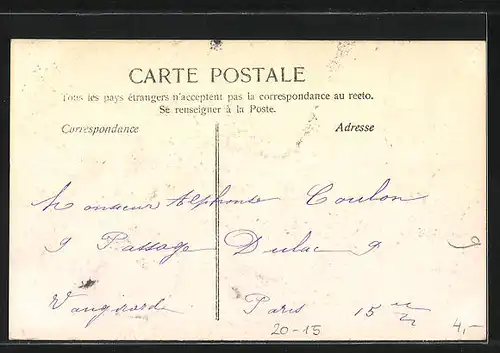 CARTE POSTALE
Tous les pays étrangers n'acceptent pas la correspondance au recto.
Se renseigner à la Poste.
Correspondance
Adresse
Monsieur Alphonse Coulon
9 Passage Dulac 9
Vaugirard Paris 15
20-15
4,-